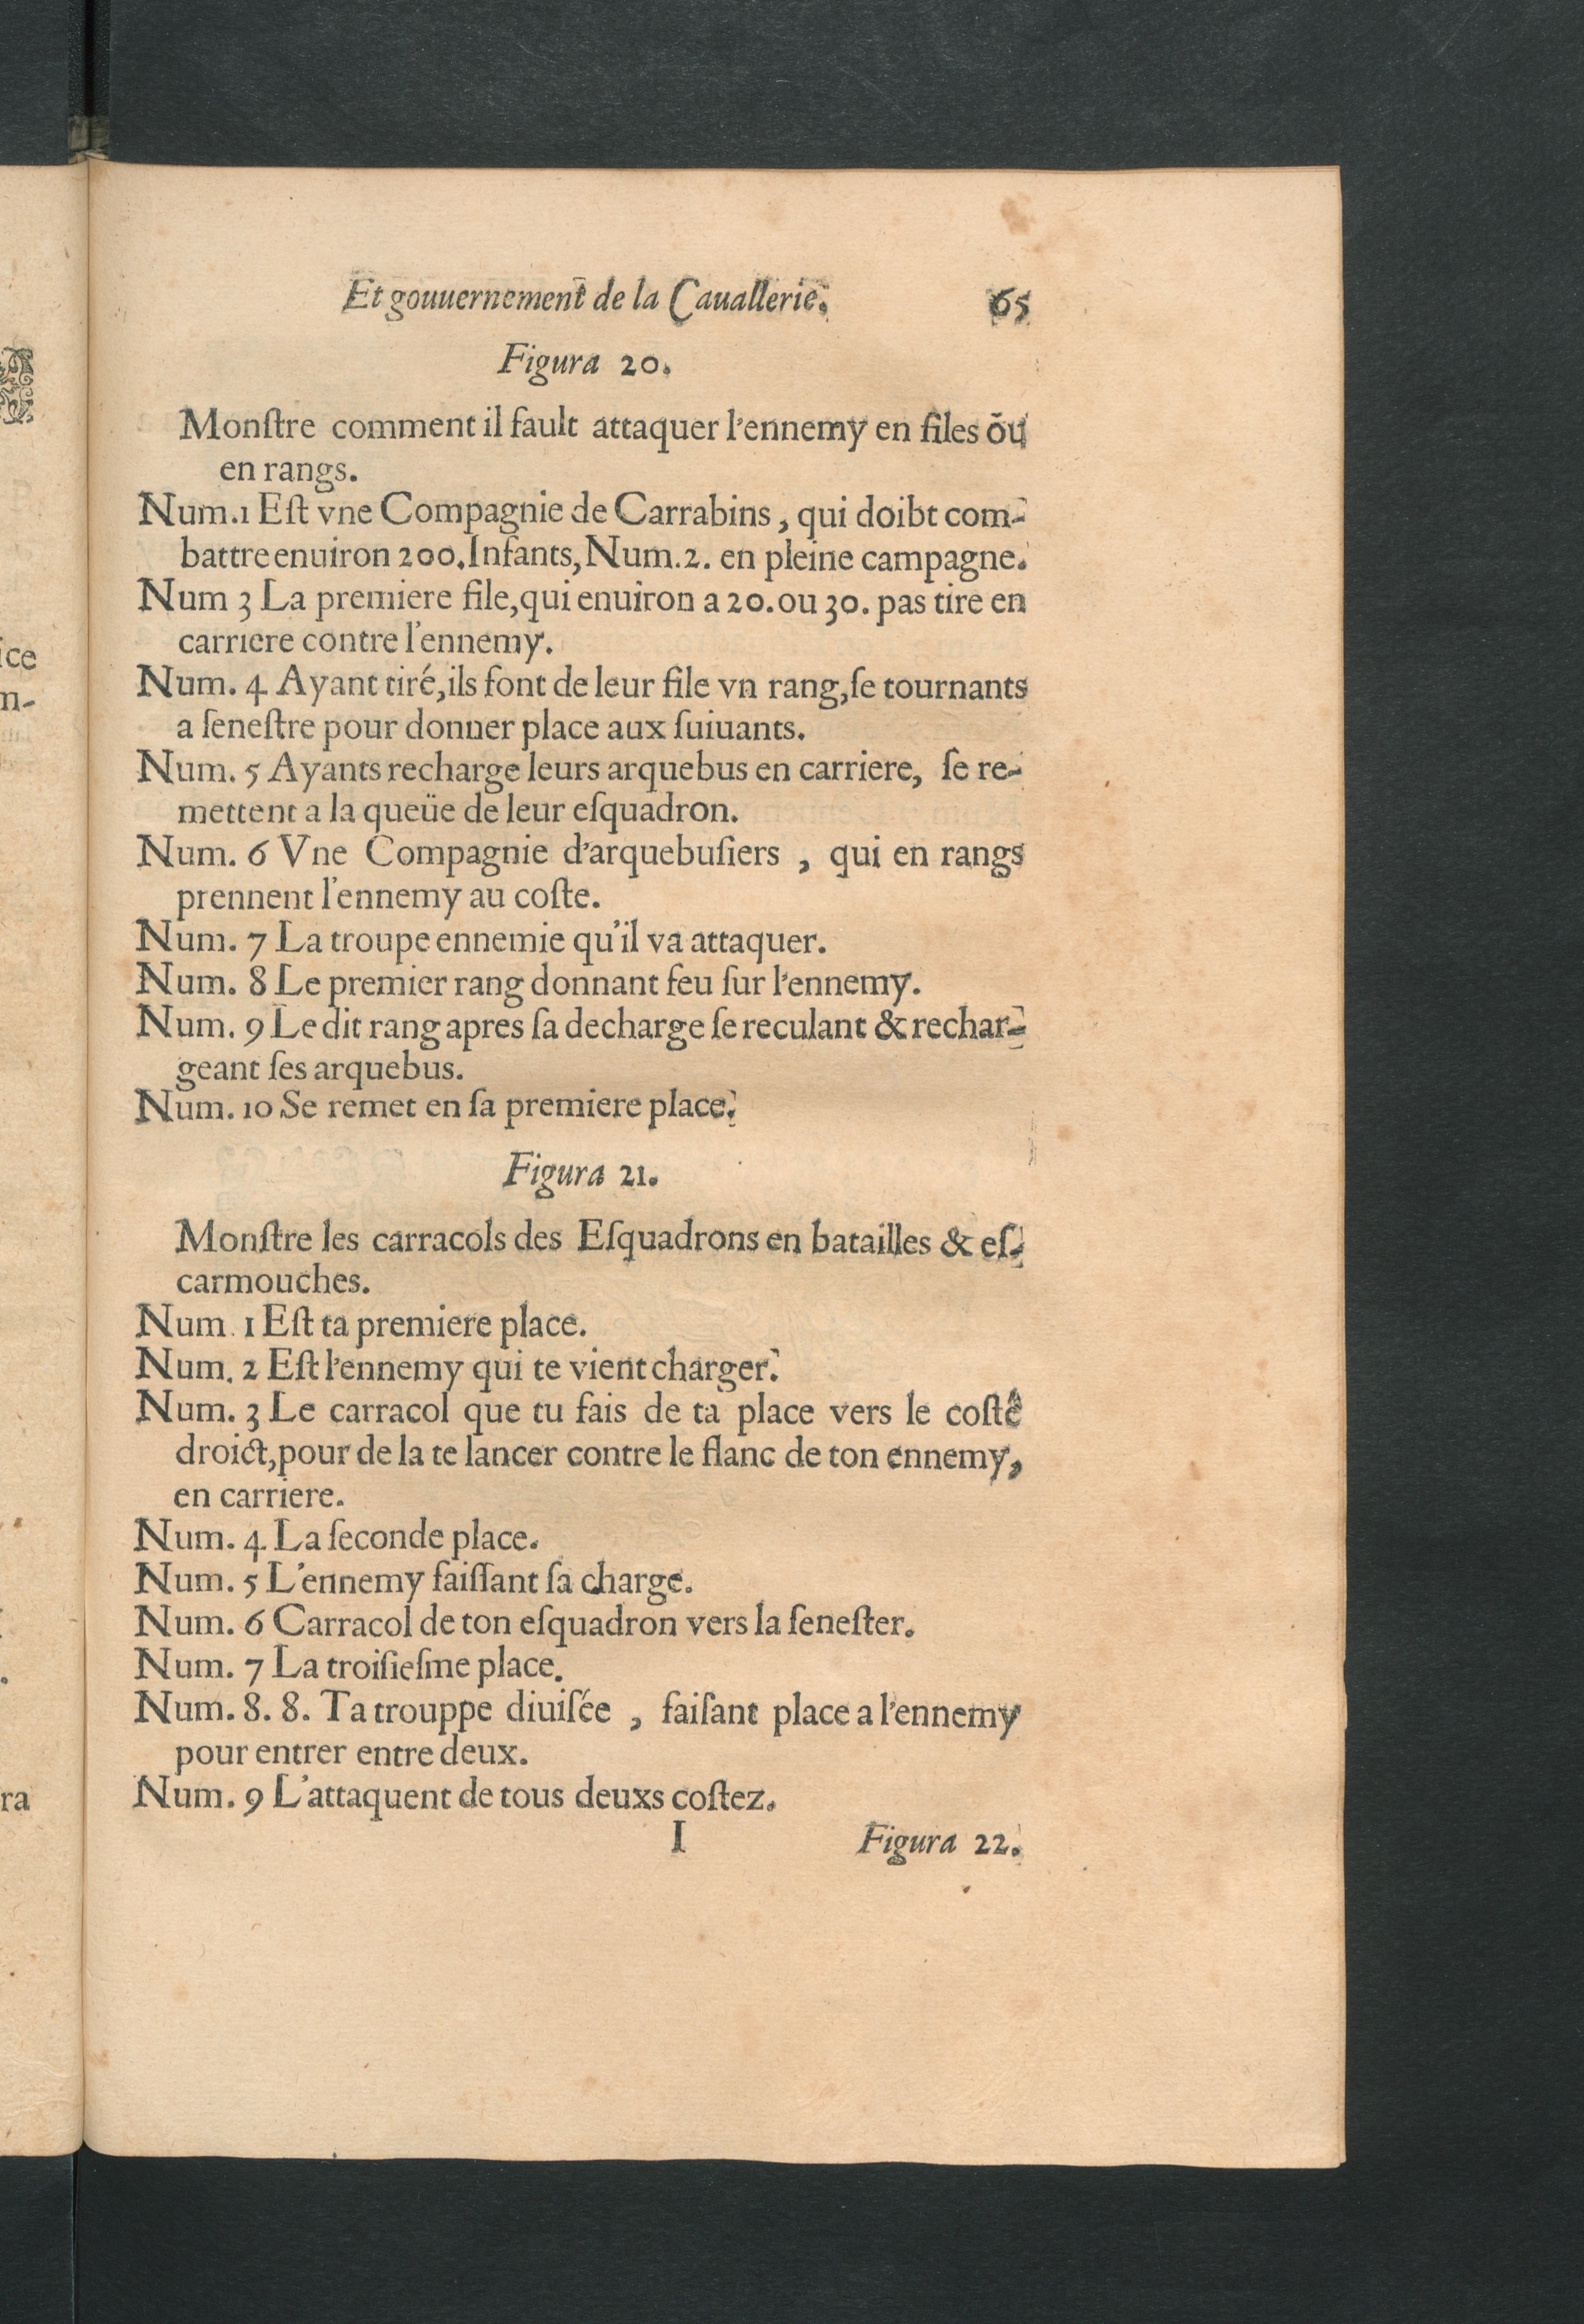 Et gouuernement de la Cauallerie. 65
Figura 20.
Monſtre comment il fault attaquer l'ennemy en files ou
en rangs.
Num.1 Eſt vne Compagnie de Carrabins, qui doibt com-
battre enuiron 200. Infants, Num.2. en pleine campagne.
Num 3 La premiere file, qui enuiron a 20. ou 30. pas tire en
carriere contre l'ennemy.
Num. 4 Ayant tiré, ils font de leur file vn rang, ſe tournants
a ſeneſtre pour donner place aux ſuiuants.
Num. 5 Ayants recharge leurs arquebus en carriere, ſe re-
mettent a la queüe de leur eſquadron.
Num. 6 Vne Compagnie d'arquebuſiers , qui en rangs
prennent l'ennemy au coſte.
Num. 7 La troupe ennemie qu'il va attaquer.
Num. 8 Le premier rang donnant feu ſur l'ennemy.
Num. 9 Le dit rang apres ſa decharge ſe reculant & rechar-
geant ſes arquebus.
Num. 10 Se remet en ſa premiere place.
Figura 21.
Monſtre les carracols des Eſquadrons en batailles & eſ-
carmouches.
Num. 1 Eſt ta premiere place.
Num. 2 Eſt l'ennemy qui te vient charger.
Num. 3 Le carracol que tu fais de ta place vers le coſté
droict, pour de la te lancer contre le flanc de ton ennemy,
en carriere.
Num. 4 La ſeconde place.
Num. 5 L'ennemy faiſſant ſa charge.
Num. 6 Carracol de ton eſquadron vers la ſeneſter.
Num. 7 La troiſieſme place.
Num. 8. 8. Ta trouppe diuiſée , faiſant place a l'ennemy
pour entrer entre deux.
Num. 9 L'attaquent de tous deuxs coſtez.
I Figura 22.
ice
n-
ra